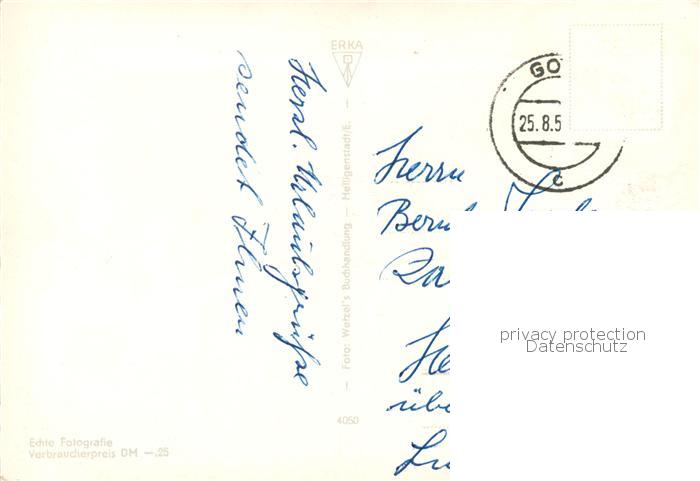 Herzl. Urlaubsgrüße
sendet Ihnen
ERKA
Foto: Wetzel's Buchhandlung — Heiligenstadt/E.
4050
Echte Fotografie
Verbraucherpreis DM —.25
GO
25.8.5
c
Herrn
privacy protection
Datenschutz